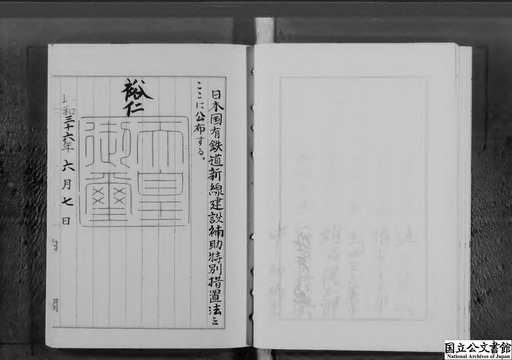 日本国有鉄道新線建設補助特別措置法を
ここに公布する。
裕仁
天皇
御璽
昭和三十六年六月七日
国立公文書館
National Archives of Japan